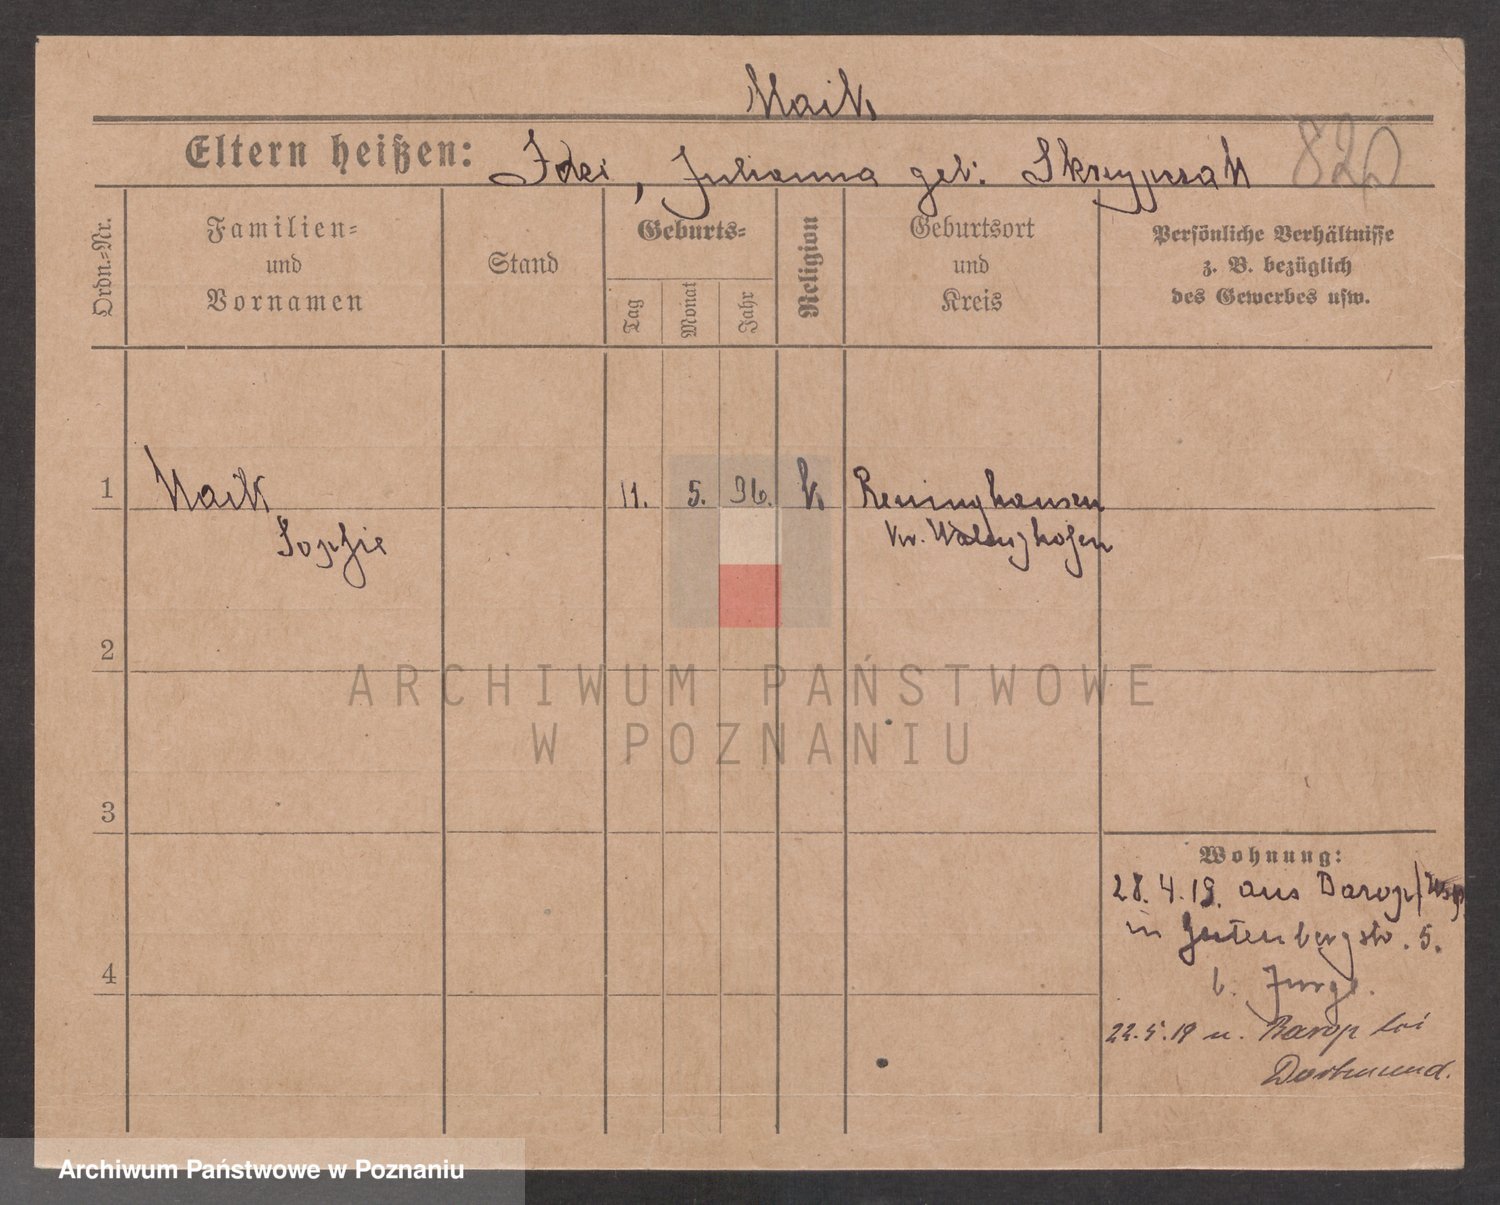 Maik
Eltern heißen:
Idzi, Julianna geb. Skrzypczak
820
Ordn.-Nr.
Familien-
und
Vornamen
Stand
Geburts-
Tag
Monat
Jahr
Religion
Geburtsort
und
Kreis
Persönliche Verhältnisse
z. B. bezüglich
des Gewerbes usw.
1
Maik
Sophie
11. 5. 96. k.
Reninghausen
Kr.
2
ARCHIWUM PAŃSTWOWE
W POZNANIU
3
Wohnung:
28.4.19. aus Barop
in Gutenbergstr. 5.
b.
4
22.5.19 n. Barop bei
Dortmund.
Archiwum Państwowe w Poznaniu